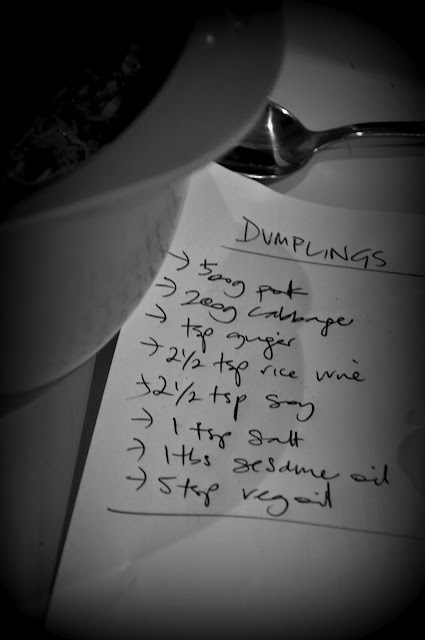 DUMPLINGS
→ 500g pork
→ 200g cabbage
→ tsp ginger
→ 2 1/2 tsp rice wine
→ 2 1/2 tsp soy
→ 1 tsp salt
→ 1 tbs sesame oil
→ 5 tsp veg oil